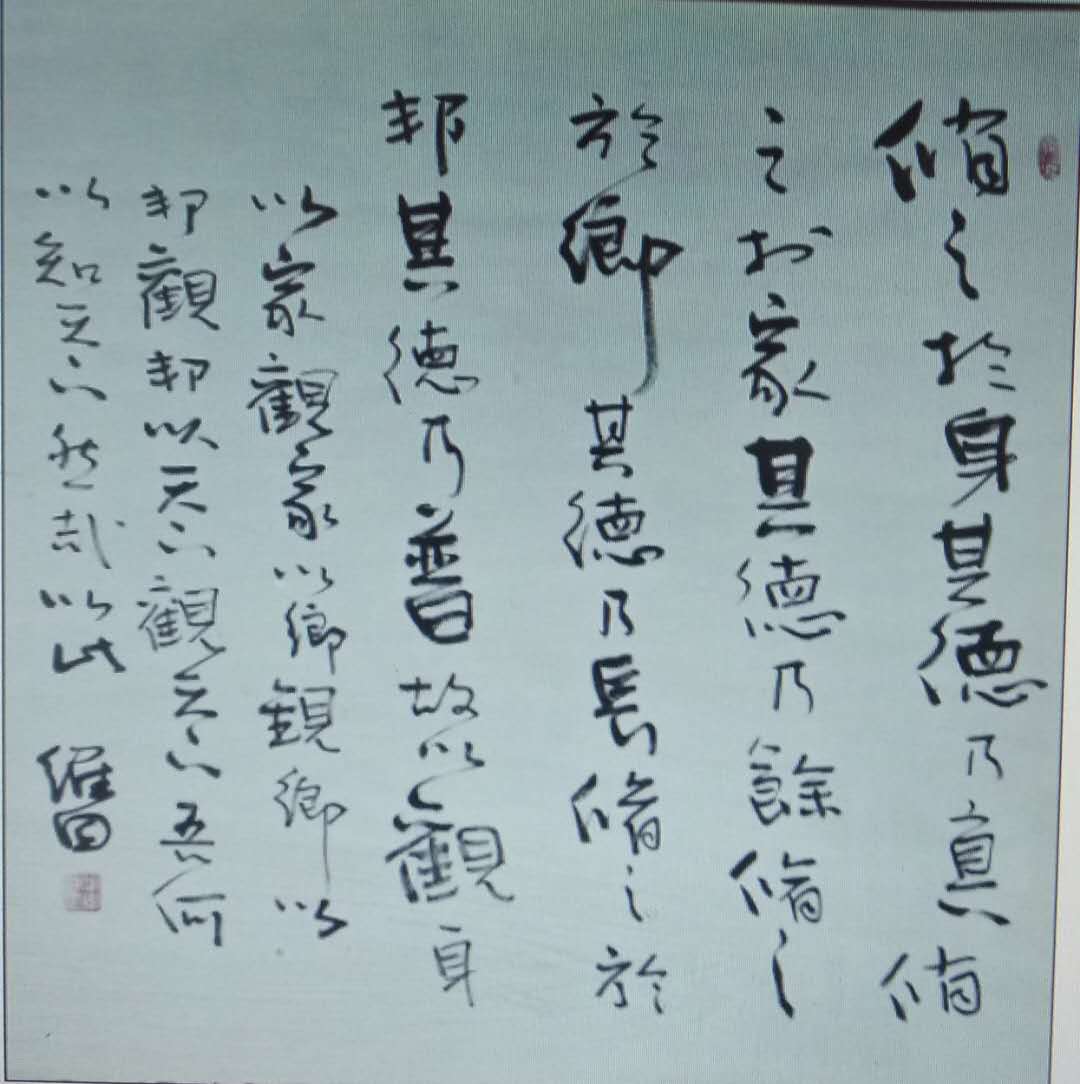 脩之於身其德乃真脩
之於家其德乃餘脩之
於鄉其德乃長脩之於
邦其德乃普故以觀身
以家觀家以鄉觀鄉以
邦觀邦以天下觀天下吾何
以知天下然哉以此